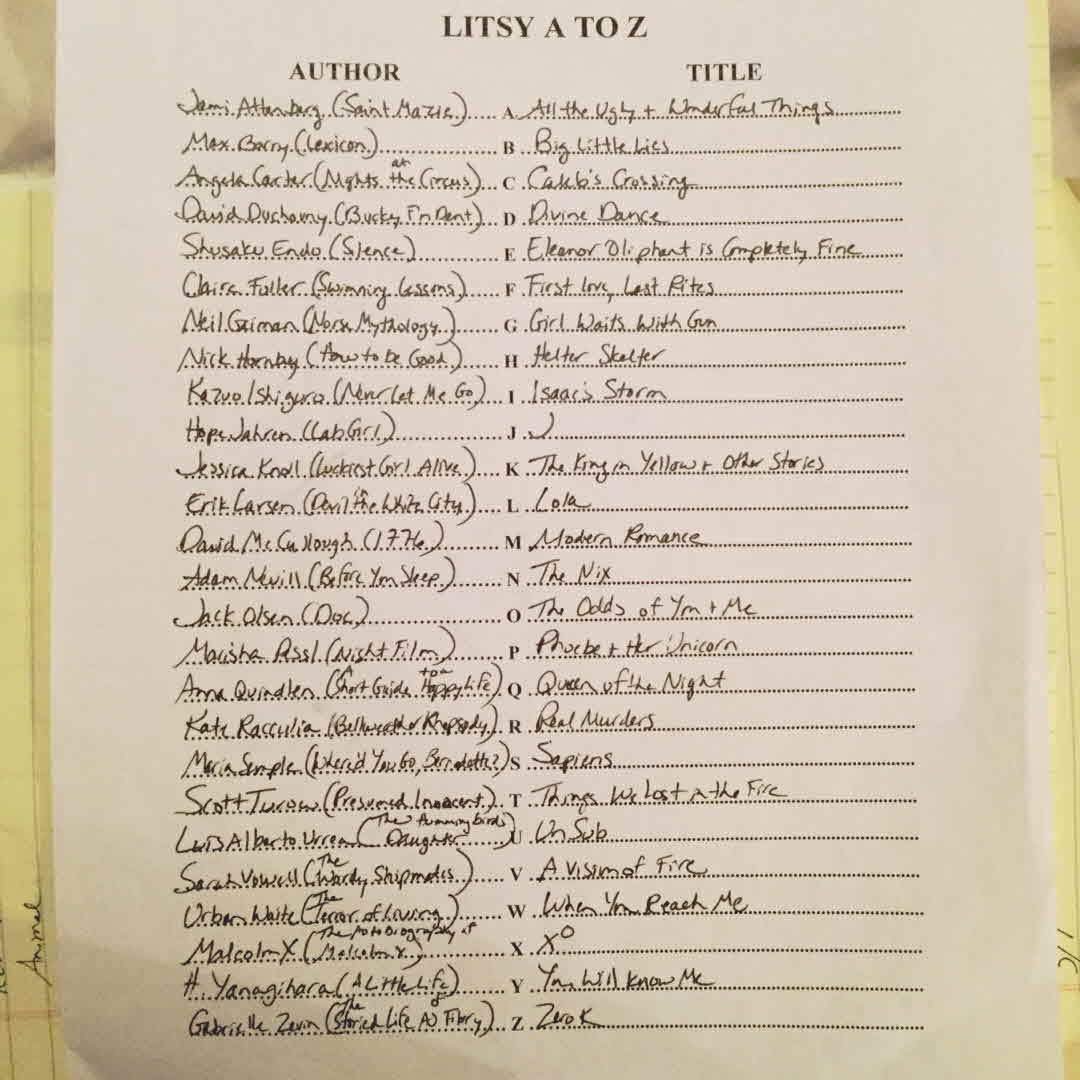 LITSY A TO Z
AUTHOR TITLE
Jami Attenberg (Saint Mazie) A All the Ugly + Wonderful Things
Max Barry (Lexicon) B Big Little Lies
Angela Carter (Nights at the Circus) C Caleb's Crossing
David Duchovny (Bucky F'n Dent) D Divine Dance
Shusaku Endo (Silence) E Eleanor Oliphant is Completely Fine
Claire Fuller (Swimming Lessons) F First Love, Last Rites
Neil Gaiman (Norse Mythology) G Girl Waits With Gun
Nick Hornby (How to be Good) H Helter Skelter
Kazuo Ishiguro (Never Let Me Go) I Isaac's Storm
Hope Jahren (Lab Girl) J J
Jessica Knoll (Luckiest Girl Alive) K The King in Yellow + Other Stories
Erik Larsen (Devil in the White City) L Lola
David McCullough (1776) M Modern Romance
Adam Nevill (Before You Sleep) N The Nix
Jack Olsen (Doc) O The Odds of You + Me
Marisha Pessl (Night Film) P Phoebe + Her Unicorn
Anna Quindlen (A Short Guide to a Happy Life) Q Queen of the Night
Kate Racculia (Bellweather Rhapsody) R Real Murders
Maria Semple (Where'd You Go, Bernadette?) S Sapiens
Scott Turow (Presumed Innocent) T Things We Lost in the Fire
Luis Alberto Urrea (The Hummingbirds Daughter) U UnSub
Sarah Vowell (The Wordy Shipmates) V A Vision of Fire
Urban Waite (The Terror of Living) W When You Reach Me
Malcolm X (The Autobiography of Malcolm X) X XO
H. Yanagihara (A Little Life) Y You Will Know Me
Gabrielle Zevin (The Storied Life of AJ Fikry) Z Zero K
Animal